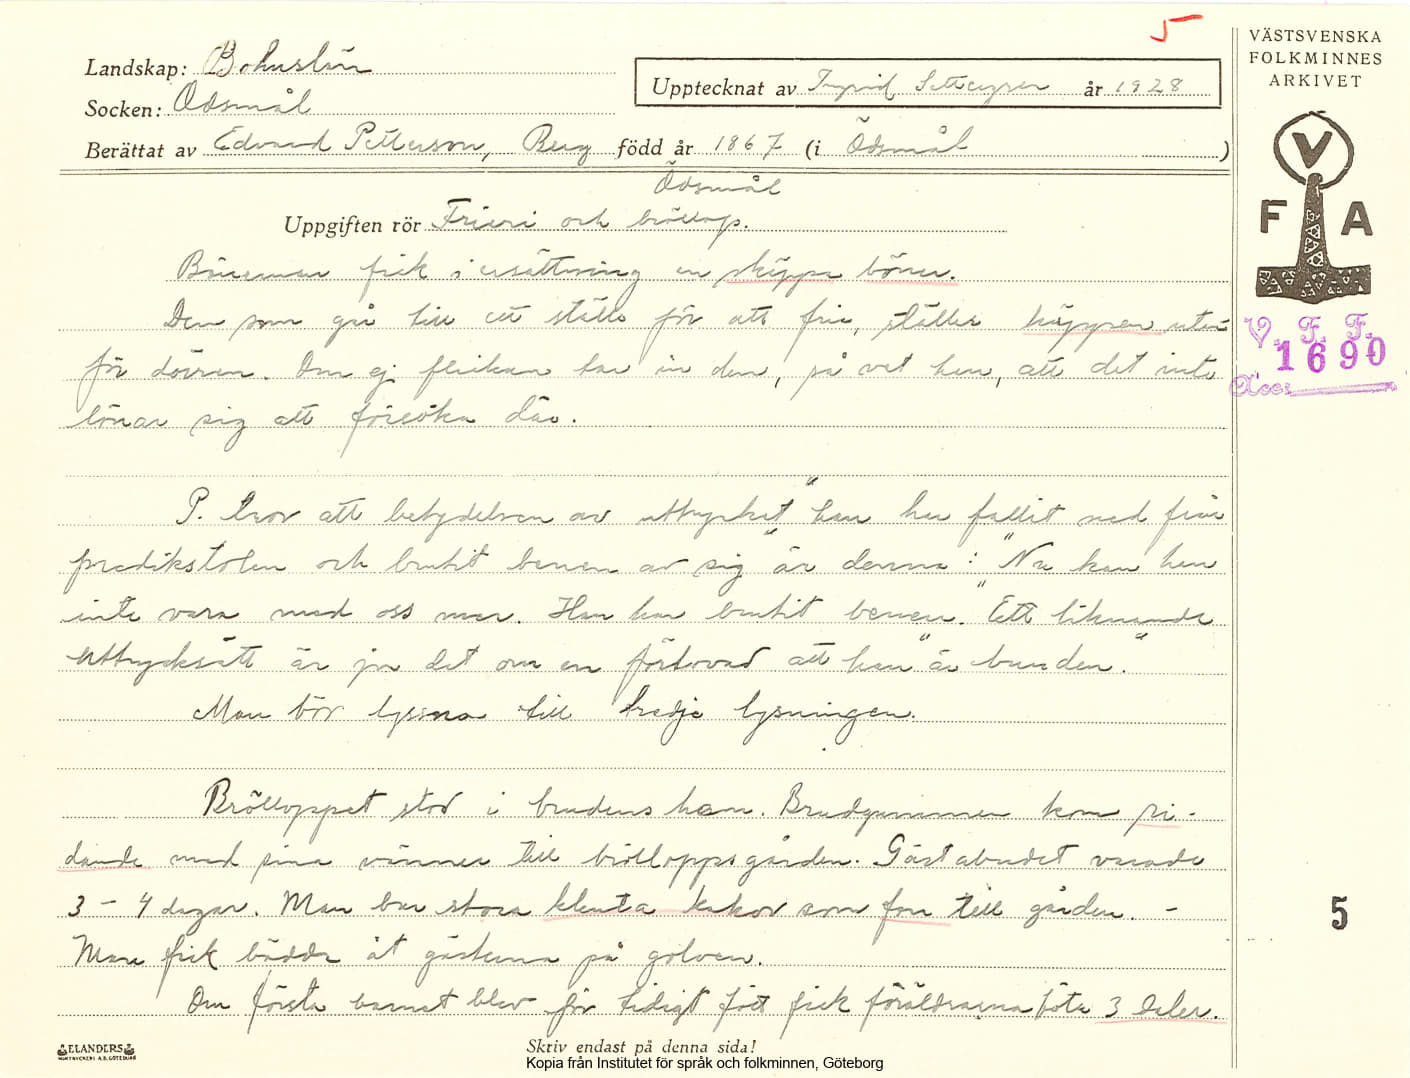 5
VÄSTSVENSKA
FOLKMINNES
ARKIVET
Landskap: Bohuslän
Upptecknat av Ingrid år 1928
Socken: Ödsmål
Berättat av Edvard Petterson, Berg född år 1867 (i Ödsmål )
Ödsmål
Uppgiften rör Frieri och bröllop.
V
F A
Böneman fick i ersättning en skäppa bönor.
Den som går till ett ställe för att fria, ställer käppen utan
för dörren. Om ej flickan tar in den, så vet han, att det inte
lönar sig att försöka där.
V. F. F.
1690
Acc:
P. tror att betydelsen av uttrycket "han har fallit ned från
predikstolen och brutit benen av sig" är denna: "Nu kan han
inte vara med oss mer. Han har brutit benen." Ett liknande
uttryckssätt är ju det om en förlovad att han "är bunden."
Man bör lyssna till tredje lysningen.
Brölloppet stod i brudens hem. Brudgummen kom ri-
dande med sina vänner till brölloppsgården. Gästabudet varade
3 - 4 dagar. Man bar stora klenta kakor som forn till gården. -
Man fick bädda åt gästerna på golven.
Om första barnet blev för tidigt fött fick föräldrarna böta 3 daler.
5
ELANDERS
BOKTRYCKERI A.B. GÖTEBORG
Skriv endast på denna sida!
Kopia från Institutet för språk och folkminnen, Göteborg